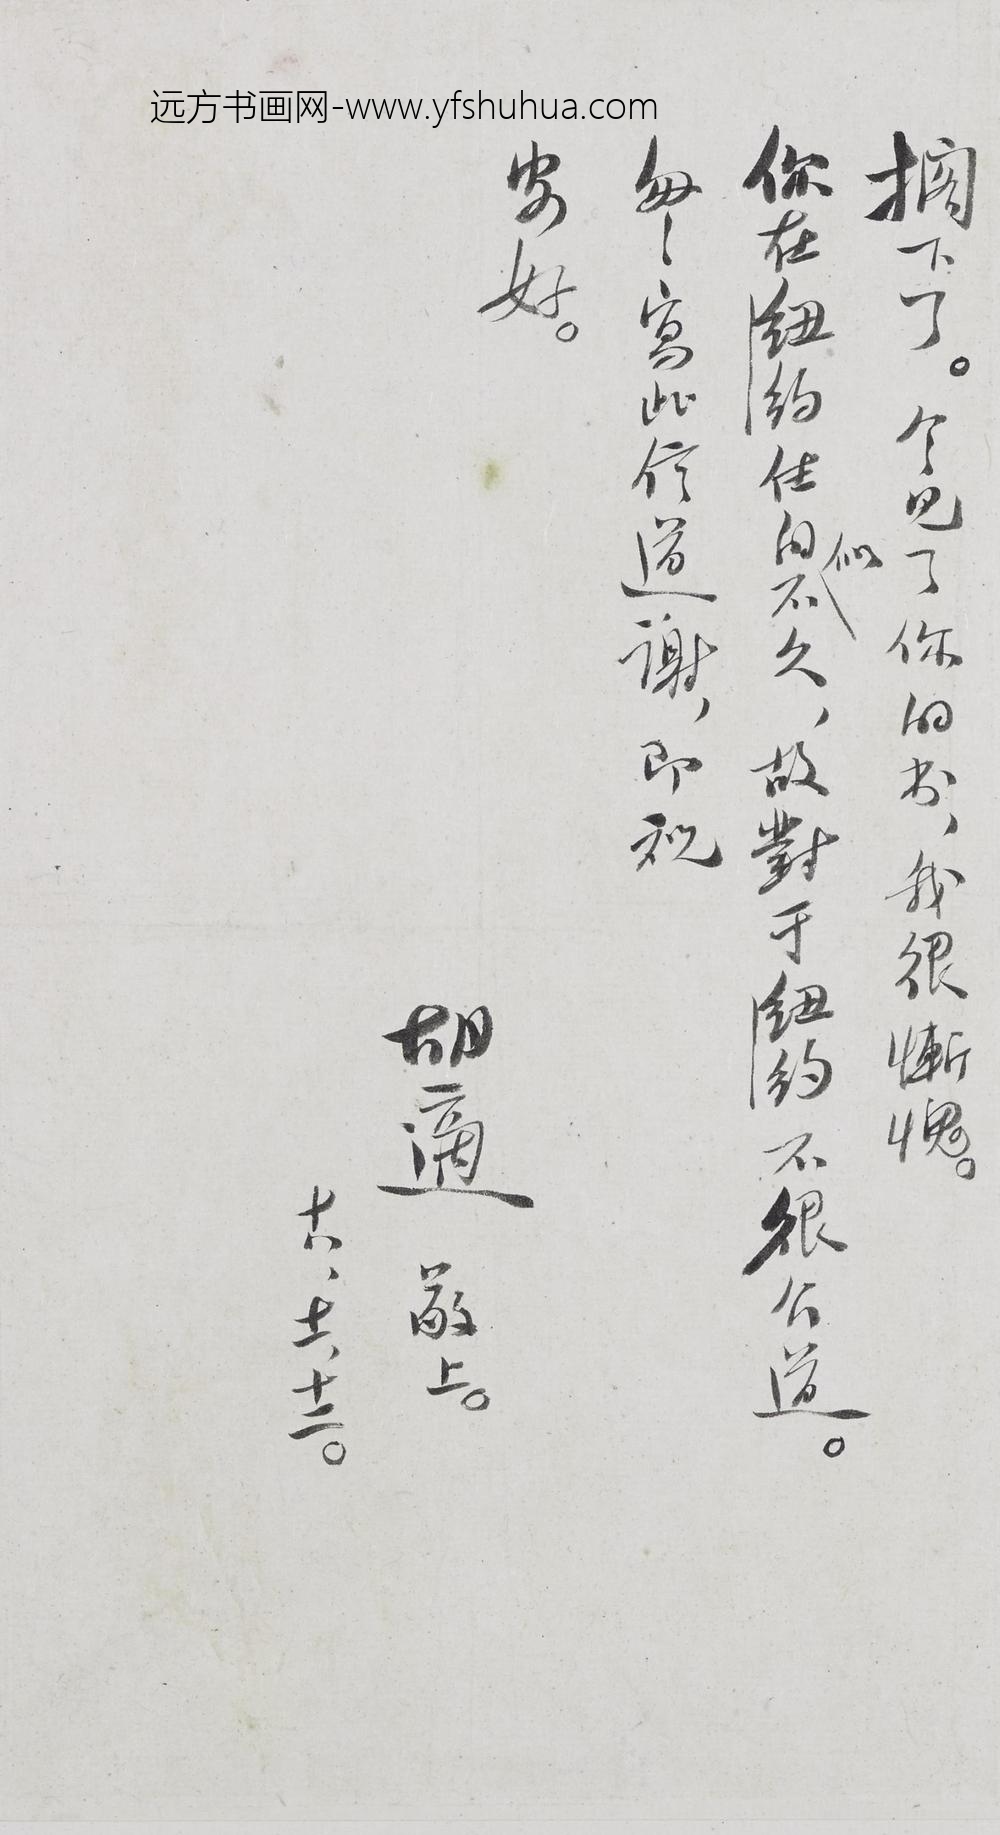 远方书画网-www.yfshuhua.com
摘下了。今見了你的书，我很慚愧。
你在紐約住的似不久，故對于紐約不很公道。
匆匆寫此信道謝，即祝
安好。
胡適 敬上。
十八、十一、十三。